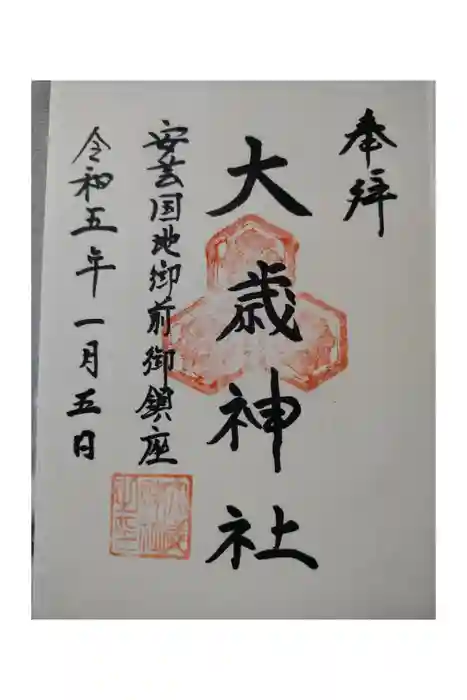 奉拝
大歳神社
安芸国地御前御鎮座
令和五年一月五日